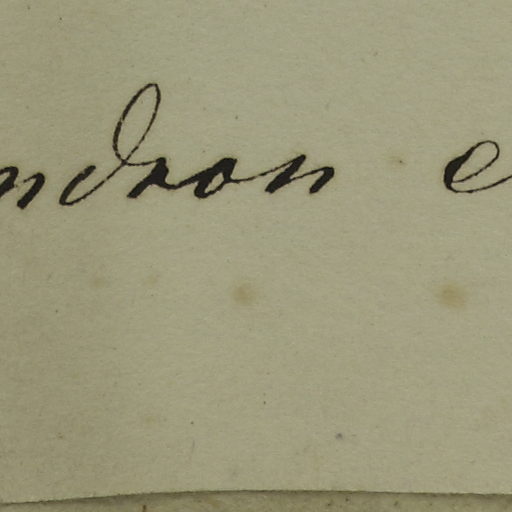 ndron e